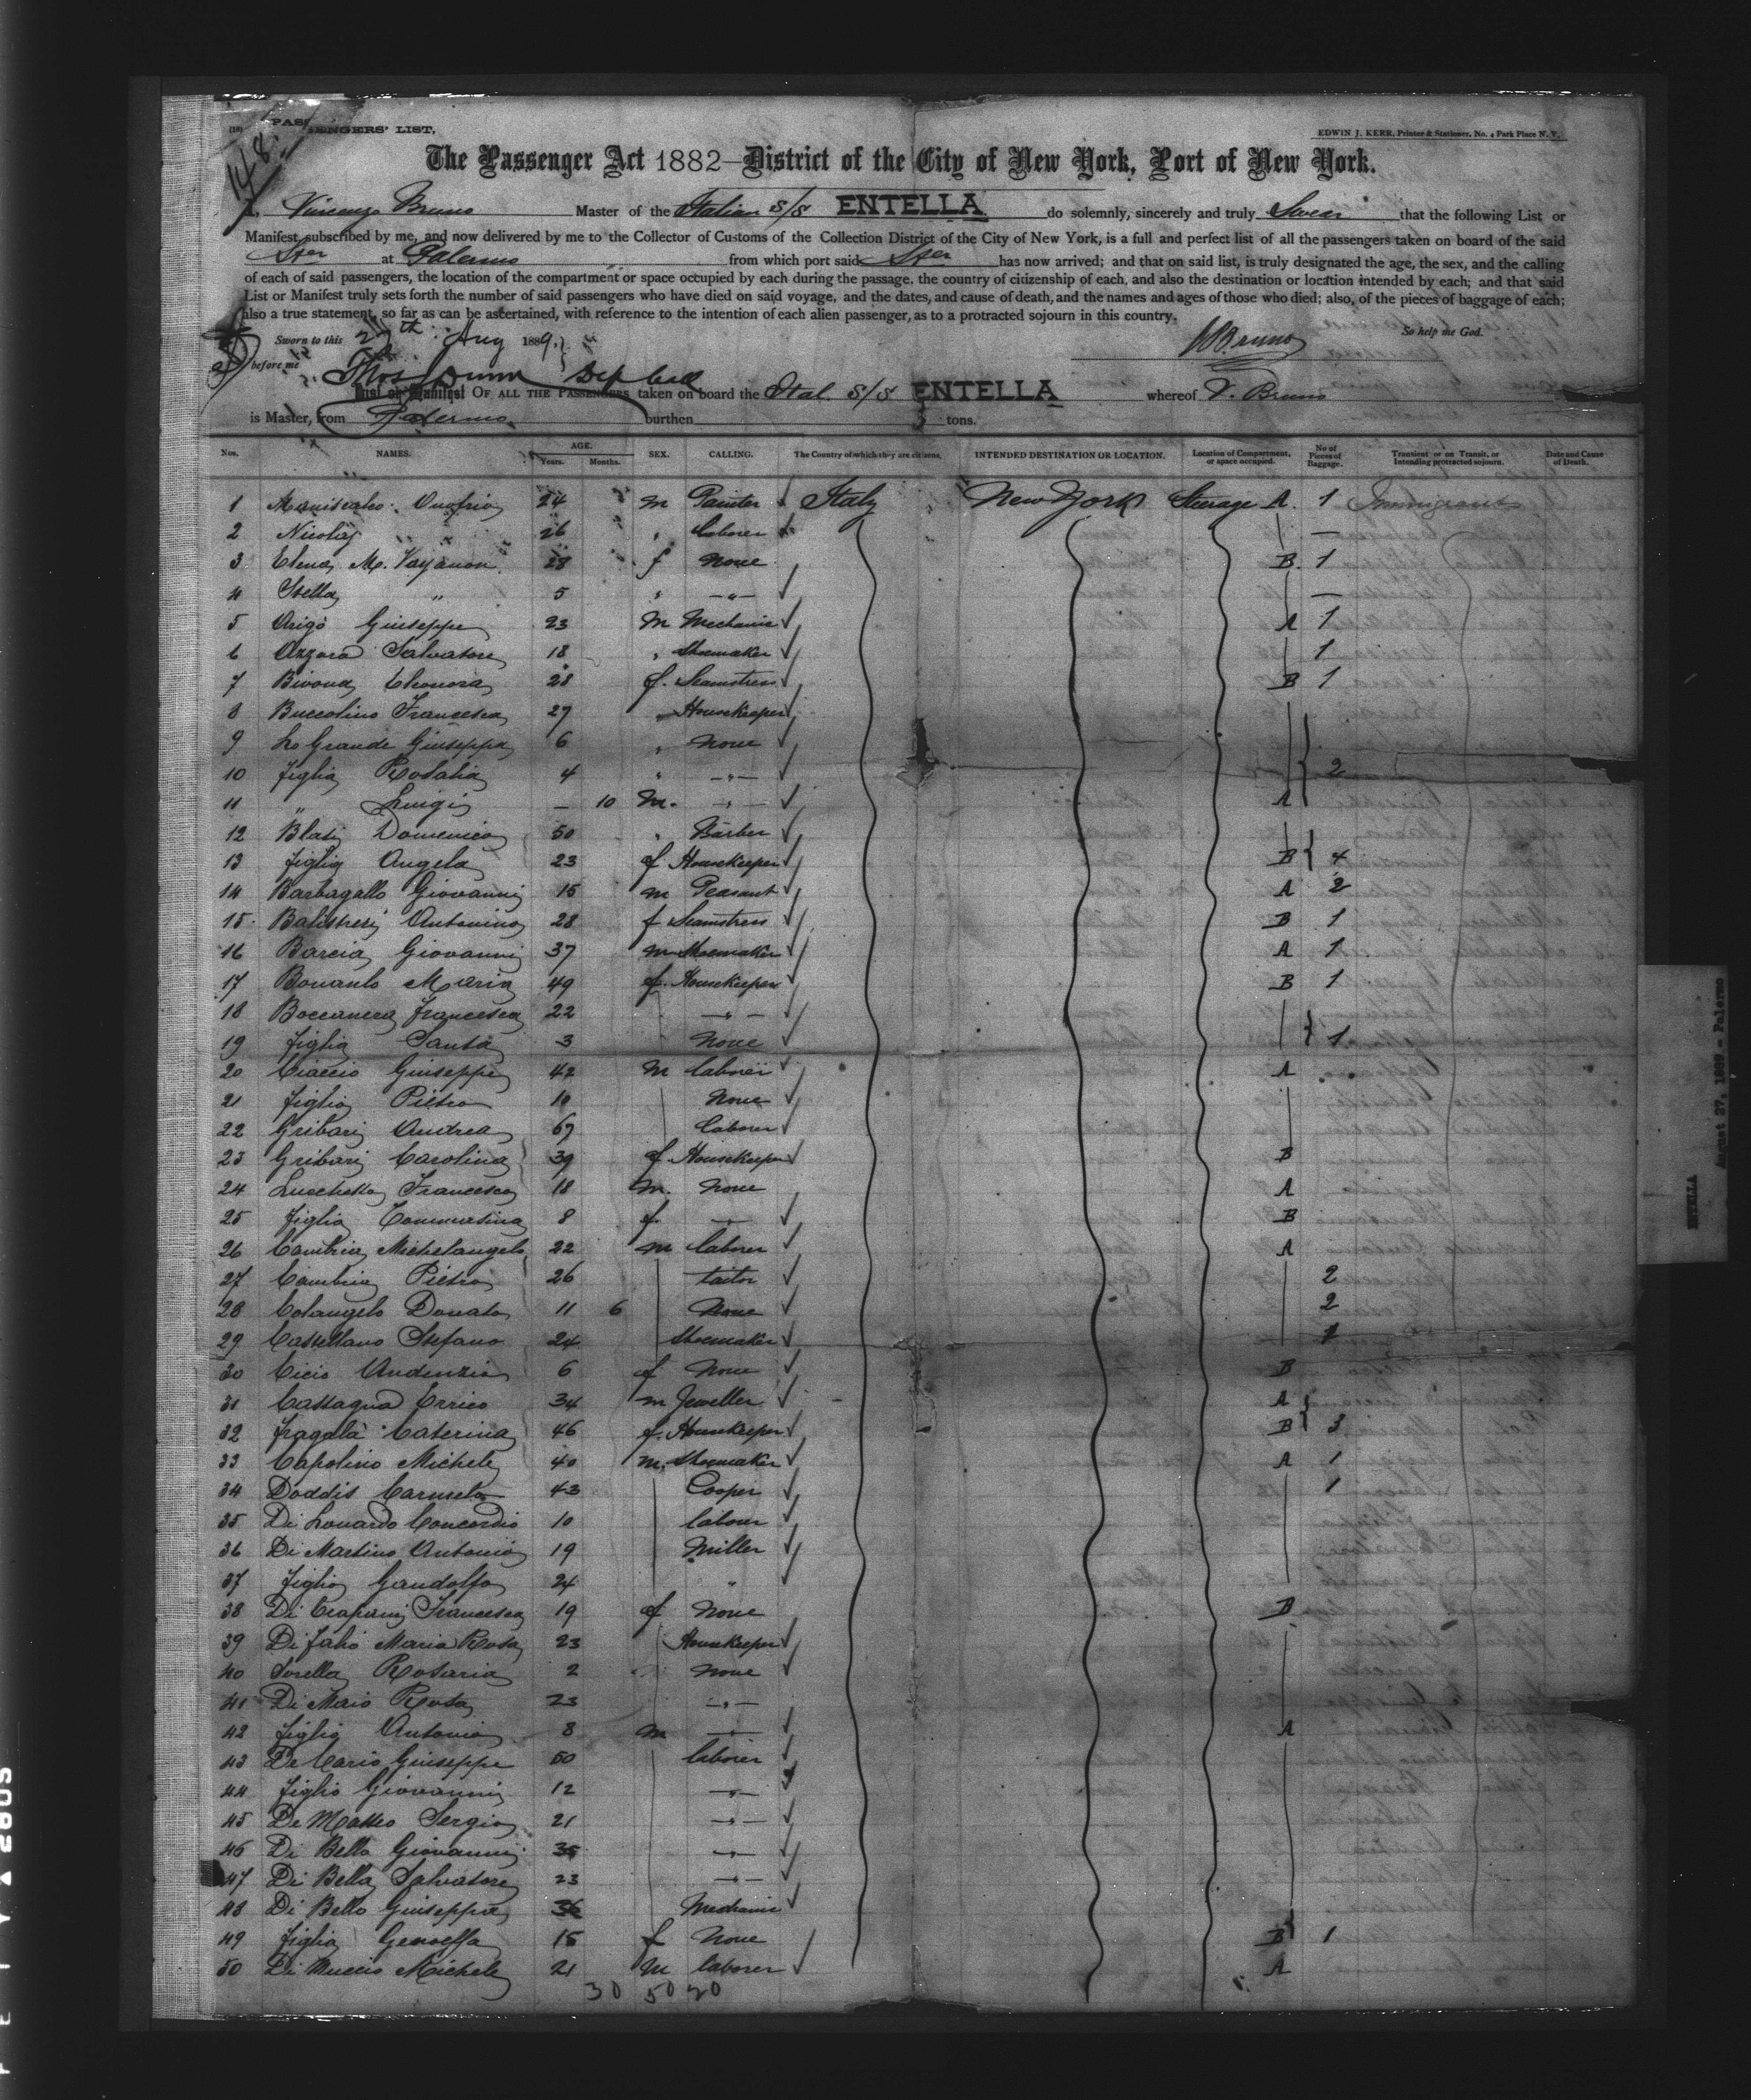 (18) PASSENGERS' LIST.
EDWIN J. KERR, Printer & Stationer, No. 4 Park Place N. Y.
148.
The Passenger Act 1882—District of the City of New York, Port of New York.
I, Vincenzo Bruno Master of the Italian S/S ENTELLA do solemnly, sincerely and truly Swear that the following List or
Manifest subscribed by me, and now delivered by me to the Collector of Customs of the Collection District of the City of New York, is a full and perfect list of all the passengers taken on board of the said
Str at Palermo from which port said Str has now arrived; and that on said list, is truly designated the age, the sex, and the calling
of each of said passengers, the location of the compartment or space occupied by each during the passage, the country of citizenship of each, and also the destination or location intended by each; and that said
List or Manifest truly sets forth the number of said passengers who have died on said voyage, and the dates, and cause of death, and the names and ages of those who died; also, of the pieces of baggage of each;
also a true statement, so far as can be ascertained, with reference to the intention of each alien passenger, as to a protracted sojourn in this country.
Sworn to this 27th Aug 1889 VBruno So help me God.
before me Thos Dunn Dep Coll
List or Manifest OF ALL THE PASSENGERS taken on board the Ital. S/S ENTELLA whereof V. Bruno
is Master, from Palermo burthen tons.
Nos. NAMES. AGE. Years. Months. SEX. CALLING. The Country of which they are citizens. INTENDED DESTINATION OR LOCATION. Location of Compartment, or space occupied. No of Pieces of Baggage. Transient or on Transit, or Intending protracted sojourn. Date and Cause of Death.
1 Maniscalco Onofrio 24 M Painter Italy New York Steerage A. 1 Immigrants
2 Nicola 26 " Laborer —
3 Elena M. 28 f None B. 1
4 Stella " 5 " —"— —
5 Arigo Giuseppe 23 M Mechanic A 1
6 Azzara Salvatore 18 " Shoemaker 1
7 Bivona Eleonora 28 f. Seamstress B 1
8 Buccolino Francesca 27 " Housekeeper
9 Lo Grande Giuseppa 6 " None
10 figlia Rosalia 4 " —"— 2
11 " Luigi — 10 M. —"— A
12 Blasi Domenico 50 " Barber
13 figlia Angela 23 f Housekeeper B 4
14 Barbagallo Giovanni 15 M Peasant A 2
15 Balistreri Antonina 28 f Seamstress B 1
16 Barcia Giovanni 37 M Shoemaker A 1
17 Bonanto Maria 49 f. Housekeeper B 1
18 Boccanera Francesca 22 —"—
19 figlia Santa 3 None 1
20 Ciaccio Giuseppe 42 M Laborer A
21 figlio Pietro 10 None
22 Gribari Andrea 67 Laborer
23 Gribari Carolina 39 f. Housekeeper B
24 Luschetta Francesco 18 M. None A
25 figlia 8 f. —"— B
26 Cambria Michelangelo 22 M Laborer A
27 Cambria Pietro 26 tailor 2
28 Colangelo Donato 11 6 None 2
29 Castellano Stefano 24 Shoemaker 1
30 Cicio Audenzia 6 f None B
31 Castagna Errico 34 M Jeweller A
32 Fragalà Caterina 46 f. Housekeeper B 3
33 Capolino Michele 40 M. Shoemaker A 1
34 Doddis Carmelo 43 Cooper 1
35 Di Lonardo Concordio 10 Labour
36 Di Martino Antonio 19 Miller
37 figlio Gandolfo 24 "
38 Di Francesca 19 f None B
39 Di Falio Maria Rosa 23 Housekeeper
40 Sorella Rosaria 2 None
41 Di Maio Rosa 23 —"—
42 figlio Antonio 8 M —"— A
43 De Mario Giuseppe 50 Laborer
44 figlio Giovanni 12 —"—
45 De Matteo Sergio 21 —"—
46 Di Bella Giovanni 35 —"—
47 Di Bella Salvatore 23 —"—
48 Di Bello Giuseppe 36 Mechanic
49 figlia Genoeffa 15 f None B 1
50 Di Muccio Michele 21 M Laborer A
30 50 20
ENTELLA
August 27, 1889 - Palermo